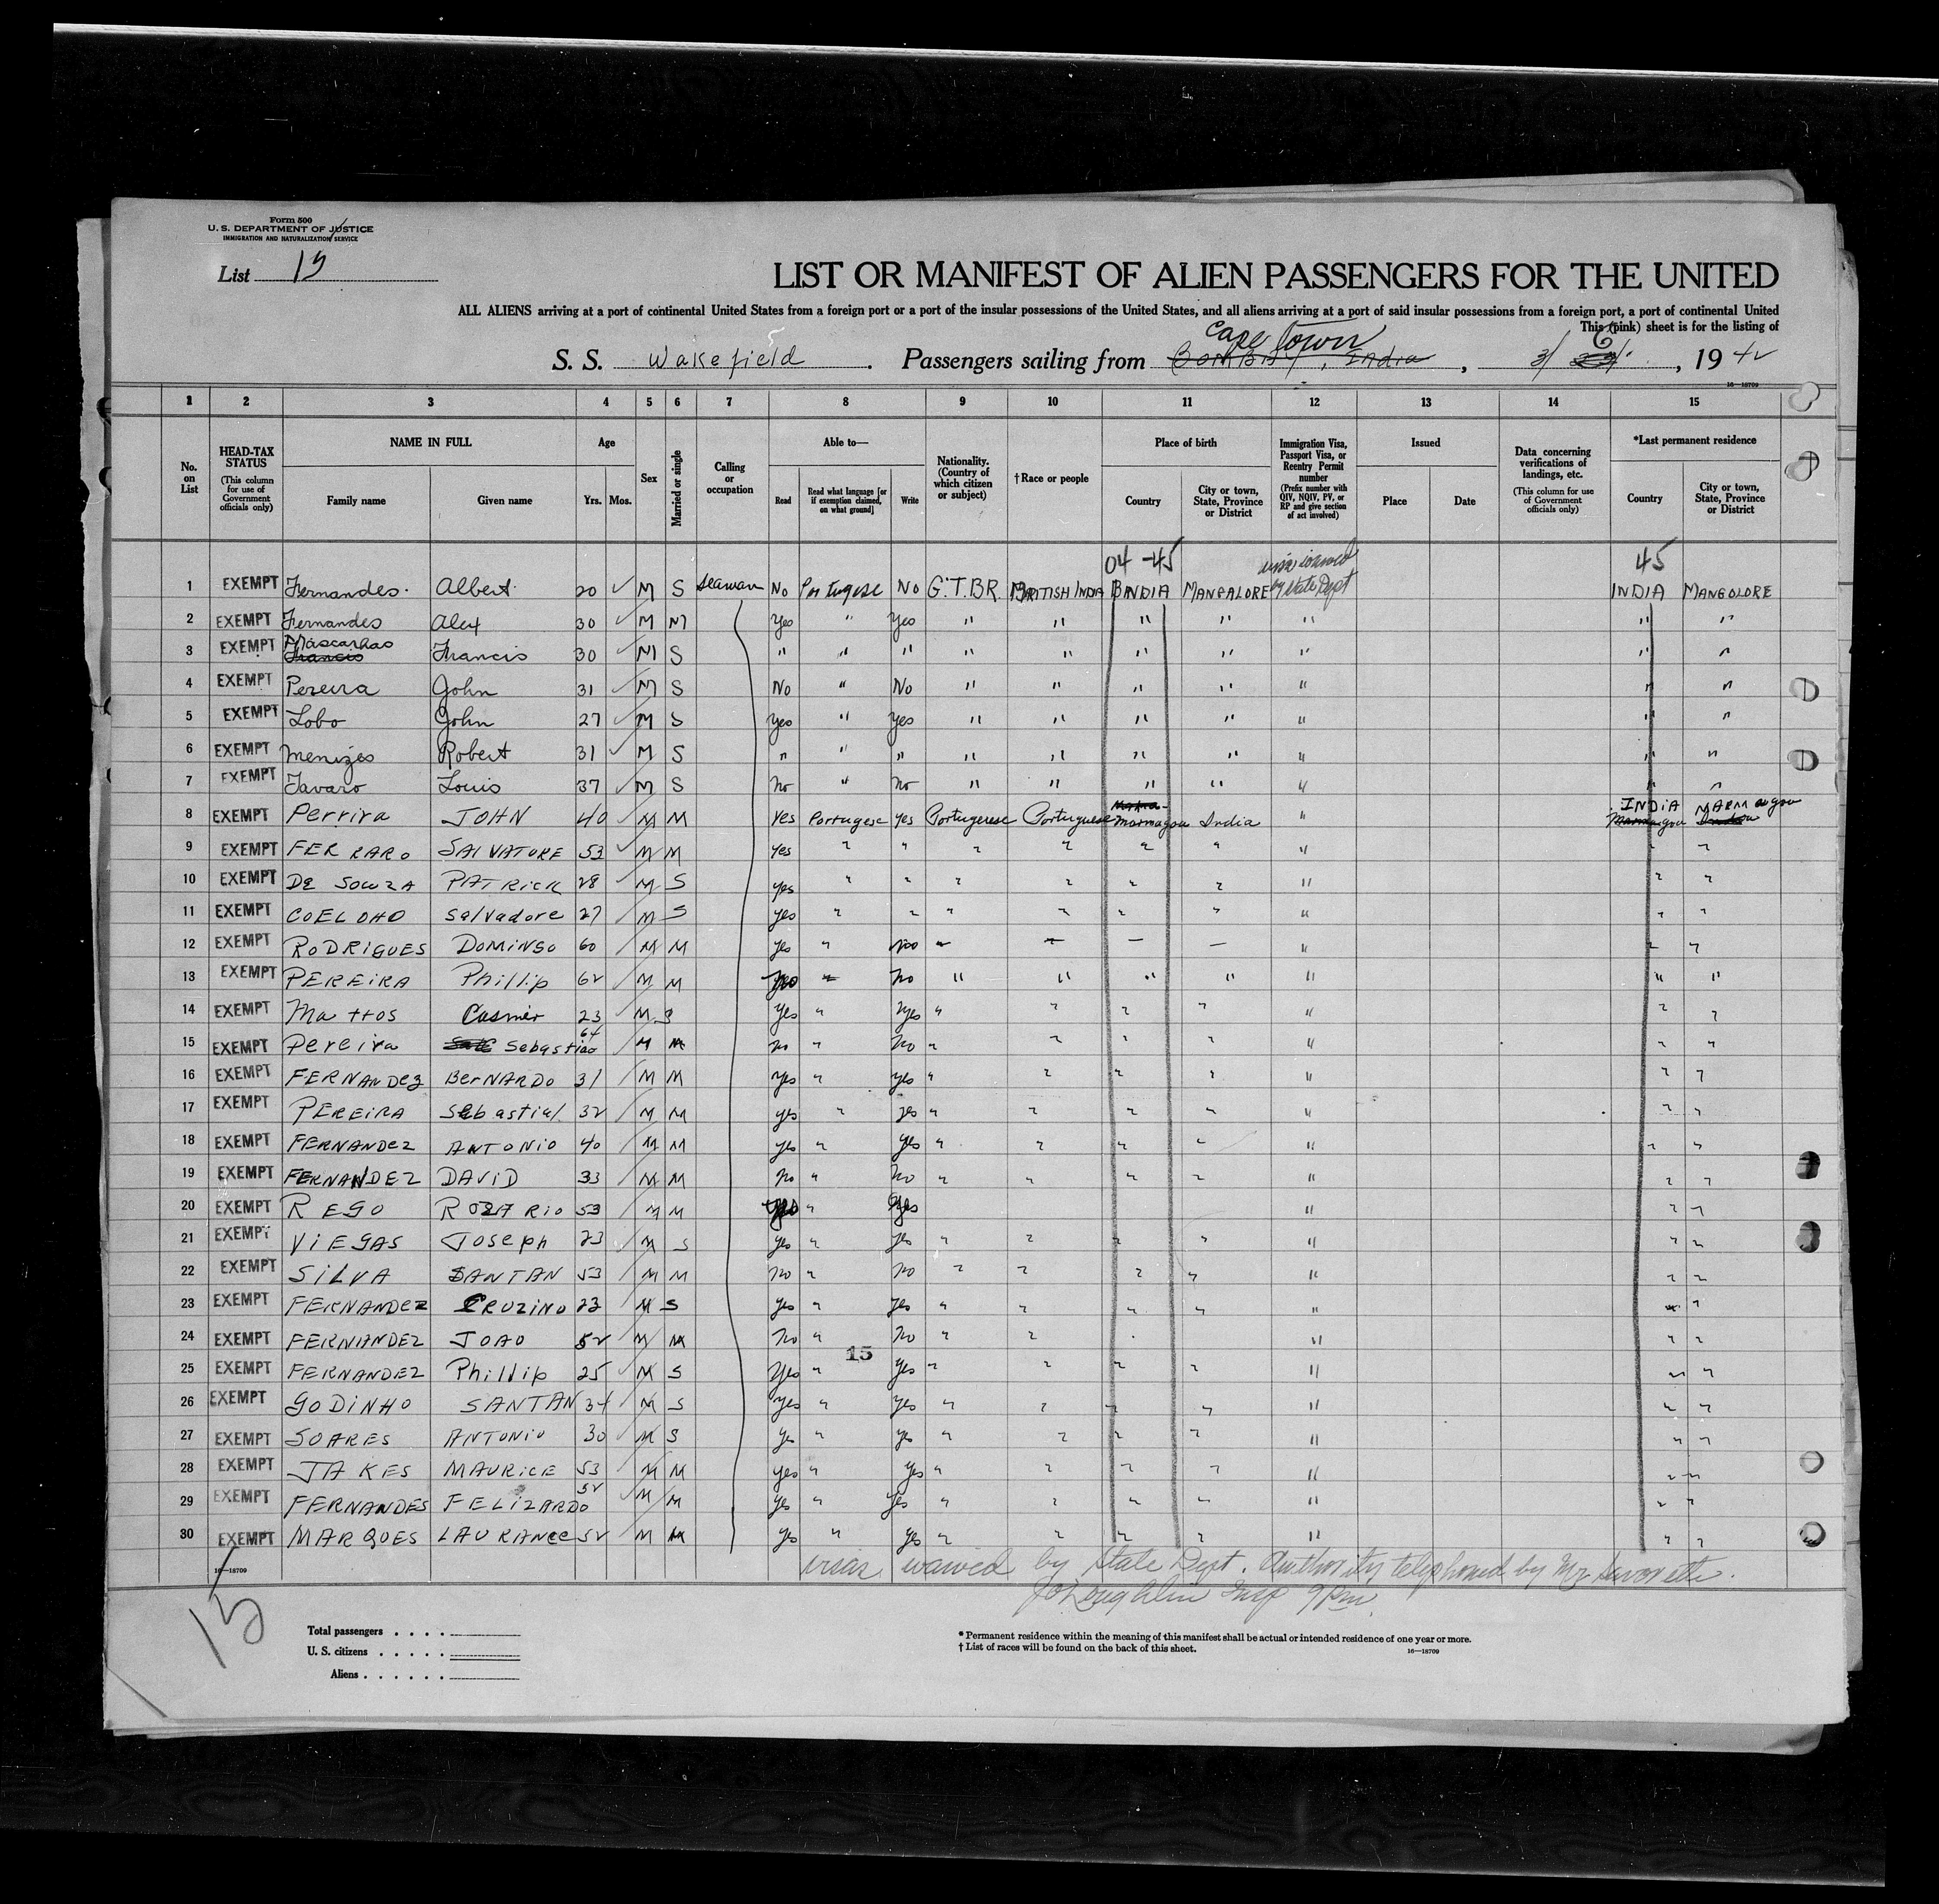 Form 500
U. S. DEPARTMENT OF JUSTICE
IMMIGRATION AND NATURALIZATION SERVICE
List 15
LIST OR MANIFEST OF ALIEN PASSENGERS FOR THE UNITED
ALL ALIENS arriving at a port of continental United States from a foreign port or a port of the insular possessions of the United States, and all aliens arriving at a port of said insular possessions from a foreign port, a port of continental United
This (pink) sheet is for the listing of
Cape Town
S. S. Wakefield . Passengers sailing from Bombay, India , 3/ 6 , 19 42
16—18709
1 2 3 4 5 6 7 8 9 10 11 12 13 14 15
No. on List
HEAD-TAX STATUS (This column for use of Government officials only)
NAME IN FULL Family name Given name
Age Yrs. Mos.
Sex
Married or single
Calling or occupation
Able to— Read Read what language [or if exemption claimed, on what ground] Write
Nationality. (Country of which citizen or subject)
†Race or people
Place of birth Country City or town, State, Province or District
Immigration Visa, Passport Visa, or Reentry Permit number (Prefix number with QIV, NQIV, PV, or RP and give section of act involved)
Issued Place Date
Data concerning verifications of landings, etc. (This column for use of Government officials only)
*Last permanent residence Country City or town, State, Province or District
04 -45 visa waived 45
1 EXEMPT Fernandes Albert 20 ✓ M S Seaman No Portugese No G.T.BR. BRITISH INDIA B INDIA MANGALORE by State Dept INDIA MANGOLORE
2 EXEMPT Fernandes Alex 30 ✓ M M Yes " Yes " " " " " " "
3 EXEMPT Mascarhas Francis Francis 30 ✓ M S " " " " " " " " " "
4 EXEMPT Pereira John 31 ✓ M S No " No " " " " " " "
5 EXEMPT Lobo John 27 ✓ M S Yes " Yes " " " " " " "
6 EXEMPT Menizes Robert 31 ✓ M S " " " " " " " " " "
7 EXEMPT Tavaro Louis 37 ✓ M S No " No " " " " " " "
8 EXEMPT Perrira JOHN 40 ✓ M M Yes Portugese Yes Portugerese Portuguese Marmagou India " INDIA MARMAgou
9 EXEMPT FERRARO SALVATORE 53 ✓ M M Yes " " " " " " " " "
10 EXEMPT DE SOUZA PATRICK 28 M S yes " " " " " " " " "
11 EXEMPT COELOHO Salvadore 27 M S yes " " " " " " " " "
12 EXEMPT RODRIGUES DOMINGO 60 M M yes " No " — — — " " "
13 EXEMPT PEREIRA Phillip 62 M M No " No " " " " " " "
14 EXEMPT Mattos Casmir 23 M S Yes " Yes " " " " " " "
15 EXEMPT Pereira Sebastiao 64 M M No " No " " " " " " "
16 EXEMPT FERNANDEZ BERNARDO 31 M M Yes " yes " " " " " " "
17 EXEMPT PEREIRA Sebastial 32 M M yes " yes " " " " " " "
18 EXEMPT FERNANDEZ ANTONIO 40 M M yes " yes " " " " " " "
19 EXEMPT FERNANDEZ DAVID 33 M M No " No " " " " " " "
20 EXEMPT REGO ROZARIO 53 M M " Yes " " "
21 EXEMPT VIEGAS Joseph 23 M S yes " yes " " " " " " "
22 EXEMPT SILVA SANTAN 53 M M No " No " " " " " " "
23 EXEMPT FERNANDEZ CRUZINO 23 M S Yes " Yes " " " " " " "
24 EXEMPT FERNANDEZ JOAO 52 M M No " No " " " " "
15
25 EXEMPT FERNANDEZ Phillip 25 M S Yes " Yes " " " " " " "
26 EXEMPT GODINHO SANTAN 34 M S Yes " Yes " " " " " " "
27 EXEMPT SOARES ANTONIO 30 M S Yes " yes " " " " " " "
28 EXEMPT JAKES MAURICE 53 M M yes " yes " " " " " " "
29 EXEMPT FERNANDES FELIZARDO 52 M M yes " Yes " " " " " " "
30 EXEMPT MARQUES LAURANCE 52 M M yes " yes " " " " " " "
visas waived by State Dept. Authority telephoned by Mr.
Insp 9 Pm
16—18709
15
Total passengers . . . .
U. S. citizens . . . . .
Aliens . . . . . .
* Permanent residence within the meaning of this manifest shall be actual or intended residence of one year or more.
† List of races will be found on the back of this sheet.
16—18709